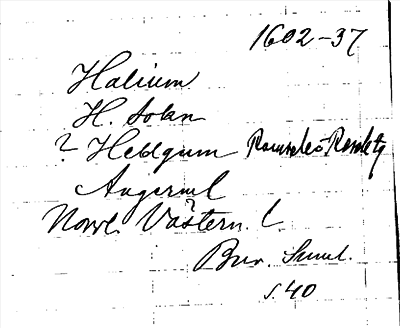 1602-37
Halium
H. Solan
? Heldgum Ramseles-Resele tg
Angerml
Norrl. Västern. l.
?
Bur. Suml.
s. 40